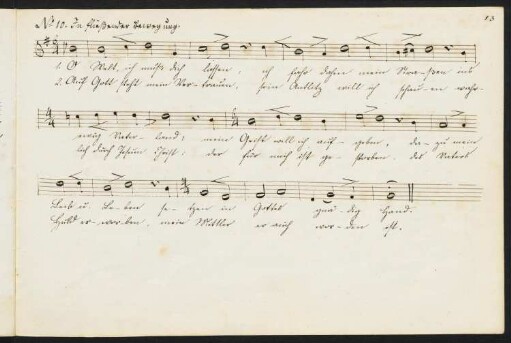 13
No 10. In fließender Bewegung.
1. O Welt, ich muß dich lassen, ich fahr dahin mein Straßen ins
2. Auf Gott steht mein Vertrauen, sein Antlitz will ich schauen wahr-
ewig Vaterland; mein Geist will ich aufgeben, dazu mein
lich durch Jesum Christ; der für mich ist gestorben, des Vaters
Leib u. Leben setzen in Gottes gnädig Hand.
Huld erworben, mein Mittler er auch worden ist.